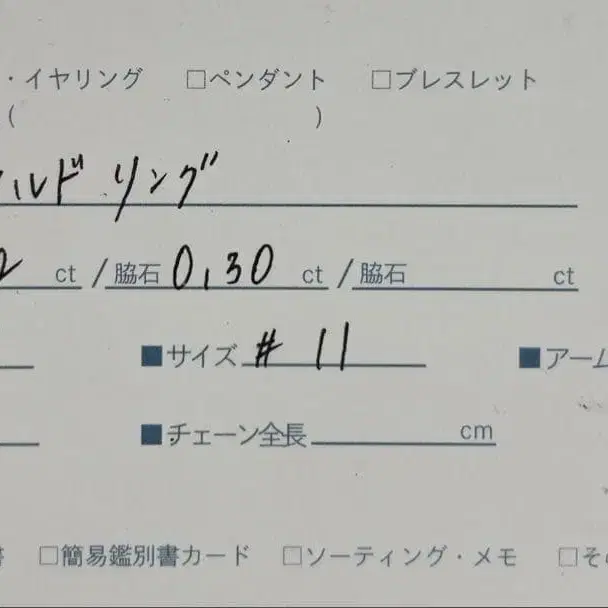 ・イヤリング □ペンダント □ブレスレット
( )
ルド リング
ct /脇石 0.30 ct /脇石 ct
■サイズ # 11 ■アーム
■チェーン全長 cm
□簡易鑑別書カード □ソーティング・メモ □その